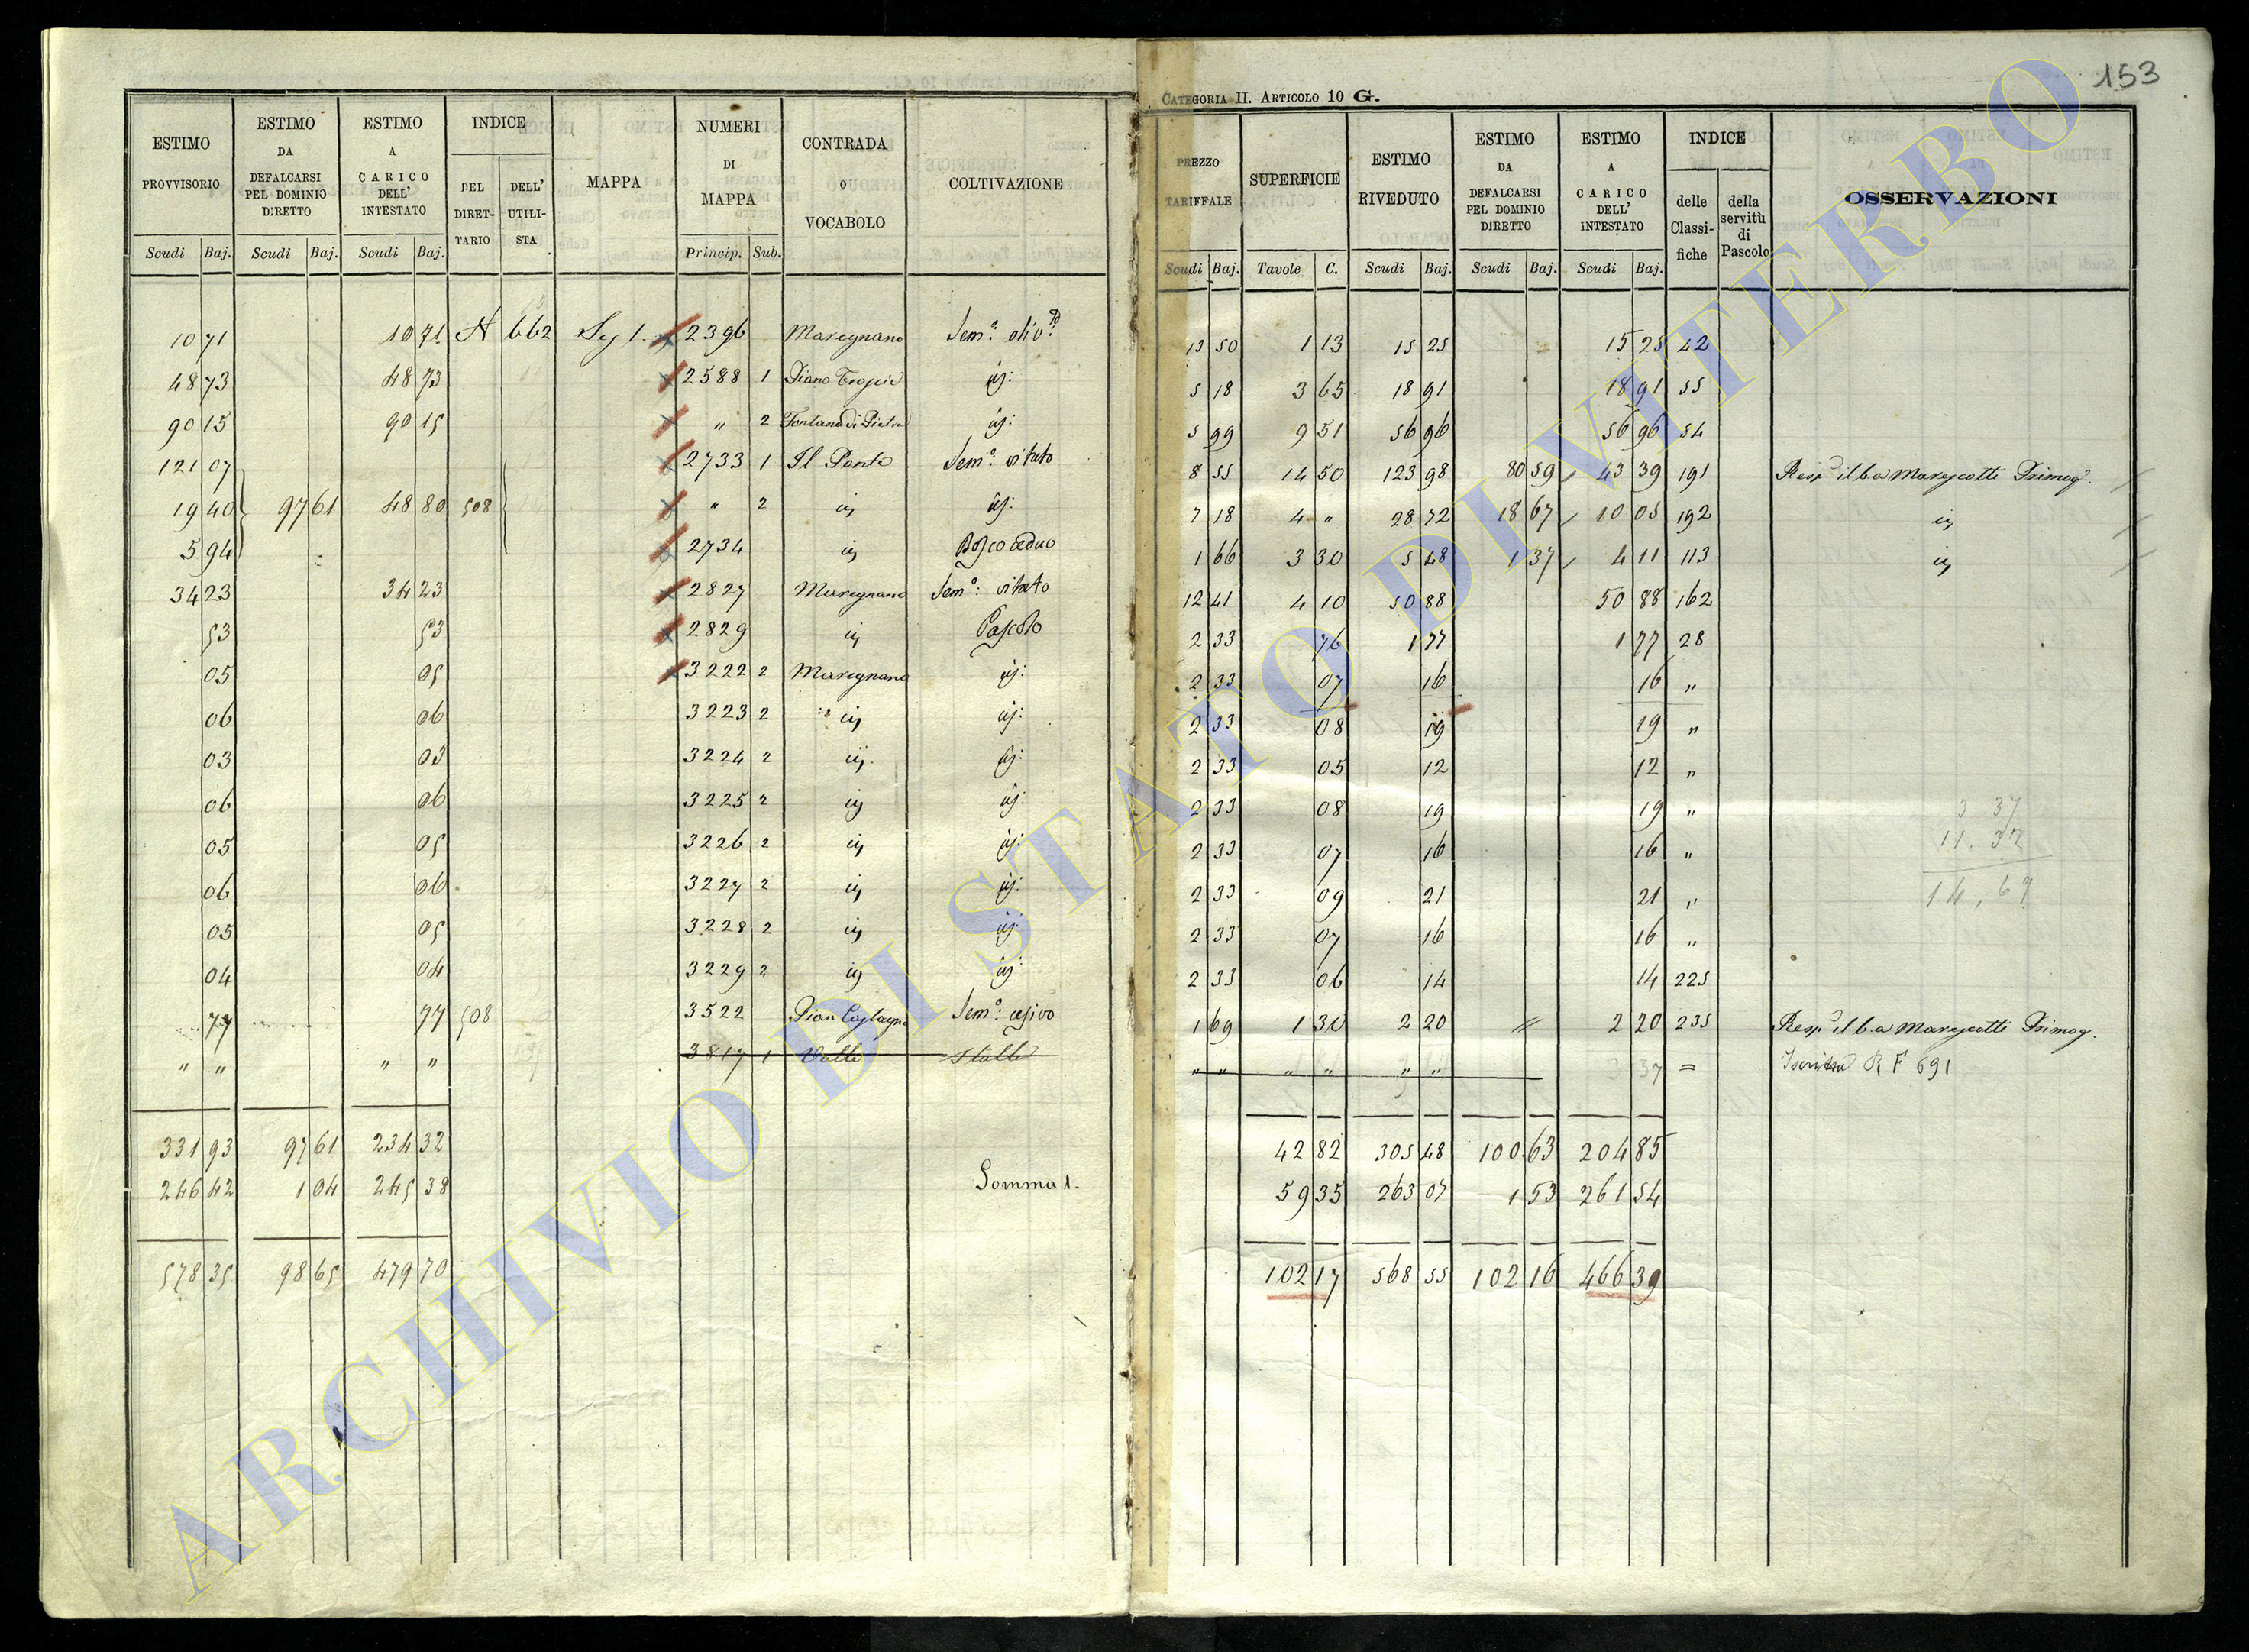 153
CATEGORIA II. ARTICOLO 10 G.
ESTIMO PROVVISORIO Scudi Baj. ESTIMO DA DEFALCARSI PEL DOMINIO DIRETTO Scudi Baj. ESTIMO A CARICO DELL' INTESTATO Scudi Baj. INDICE DEL DIRETTARIO DELL' UTILISTA MAPPA NUMERI DI MAPPA Princip. Sub. CONTRADA O VOCABOLO COLTIVAZIONE
10 71 10 71 A 662 Seg 1. 2396 Maregnano Sem.o oliv.to
48 73 48 73 2588 1 Piano iij:
90 15 90 15 " 2 Fontana di Pietra iij:
121 07 2733 1 Il Ponte Sem.o vitato
19 40 97 61 48 80 508 " 2 iij iij:
5 94 2734 iij Bosco ceduo
34 23 34 23 2827 Maregnano Sem.o: vitato
53 53 2829 iij Pascolo
05 05 3222 2 Maregnano iij:
06 06 3223 2 iij iij:
03 03 3224 2 iij. iij:
06 06 3225 2 iij iij:
05 05 3226 2 iij iij:
06 06 3227 2 iij iij:
05 05 3228 2 iij iij:
04 04 3229 2 iij iij:
77 77 508 3522 Pian Castagno Sem.o:
" " " " 3817 1 Valle Stalla
331 93 97 61 234 32
246 42 1 04 245 38 Somma 1.
578 35 98 65 479 70
PREZZO TARIFFALE Scudi Baj. SUPERFICIE Tavole C. ESTIMO RIVEDUTO Scudi Baj. ESTIMO DA DEFALCARSI PEL DOMINIO DIRETTO Scudi Baj. ESTIMO A CARICO DELL' INTESTATO Scudi Baj. INDICE delle Classifiche della servitù di Pascolo OSSERVAZIONI
13 50 1 13 15 25 15 25 42
5 18 3 65 18 91 18 91 55
5 99 9 51 56 96 56 96 54
8 55 14 50 123 98 80 59 43 39 191 Marescotti Primog.
7 18 4 " 28 72 18 67 10 05 192 iij
1 66 3 30 5 48 1 37 4 11 113 iij
12 41 4 10 50 88 50 88 162
2 33 76 1 77 1 77 28
2 33 07 16 16 "
2 33 08 19 19 "
2 33 05 12 12 "
2 33 08 19 19 "
2 33 07 16 16 "
2 33 09 21 21 "
2 33 07 16 16 "
2 33 06 14 14 225
1 69 1 30 2 20 " 2 20 235 Marescotti Primog.
" " " " " " 37 = R F 691
3 37
11.32
14,69
42 82 305 48 100 63 204 85
59 35 263 07 1 53 261 54
102 17 568 55 102 16 466 39
ARCHIVIO DI STATO DI VITERBO